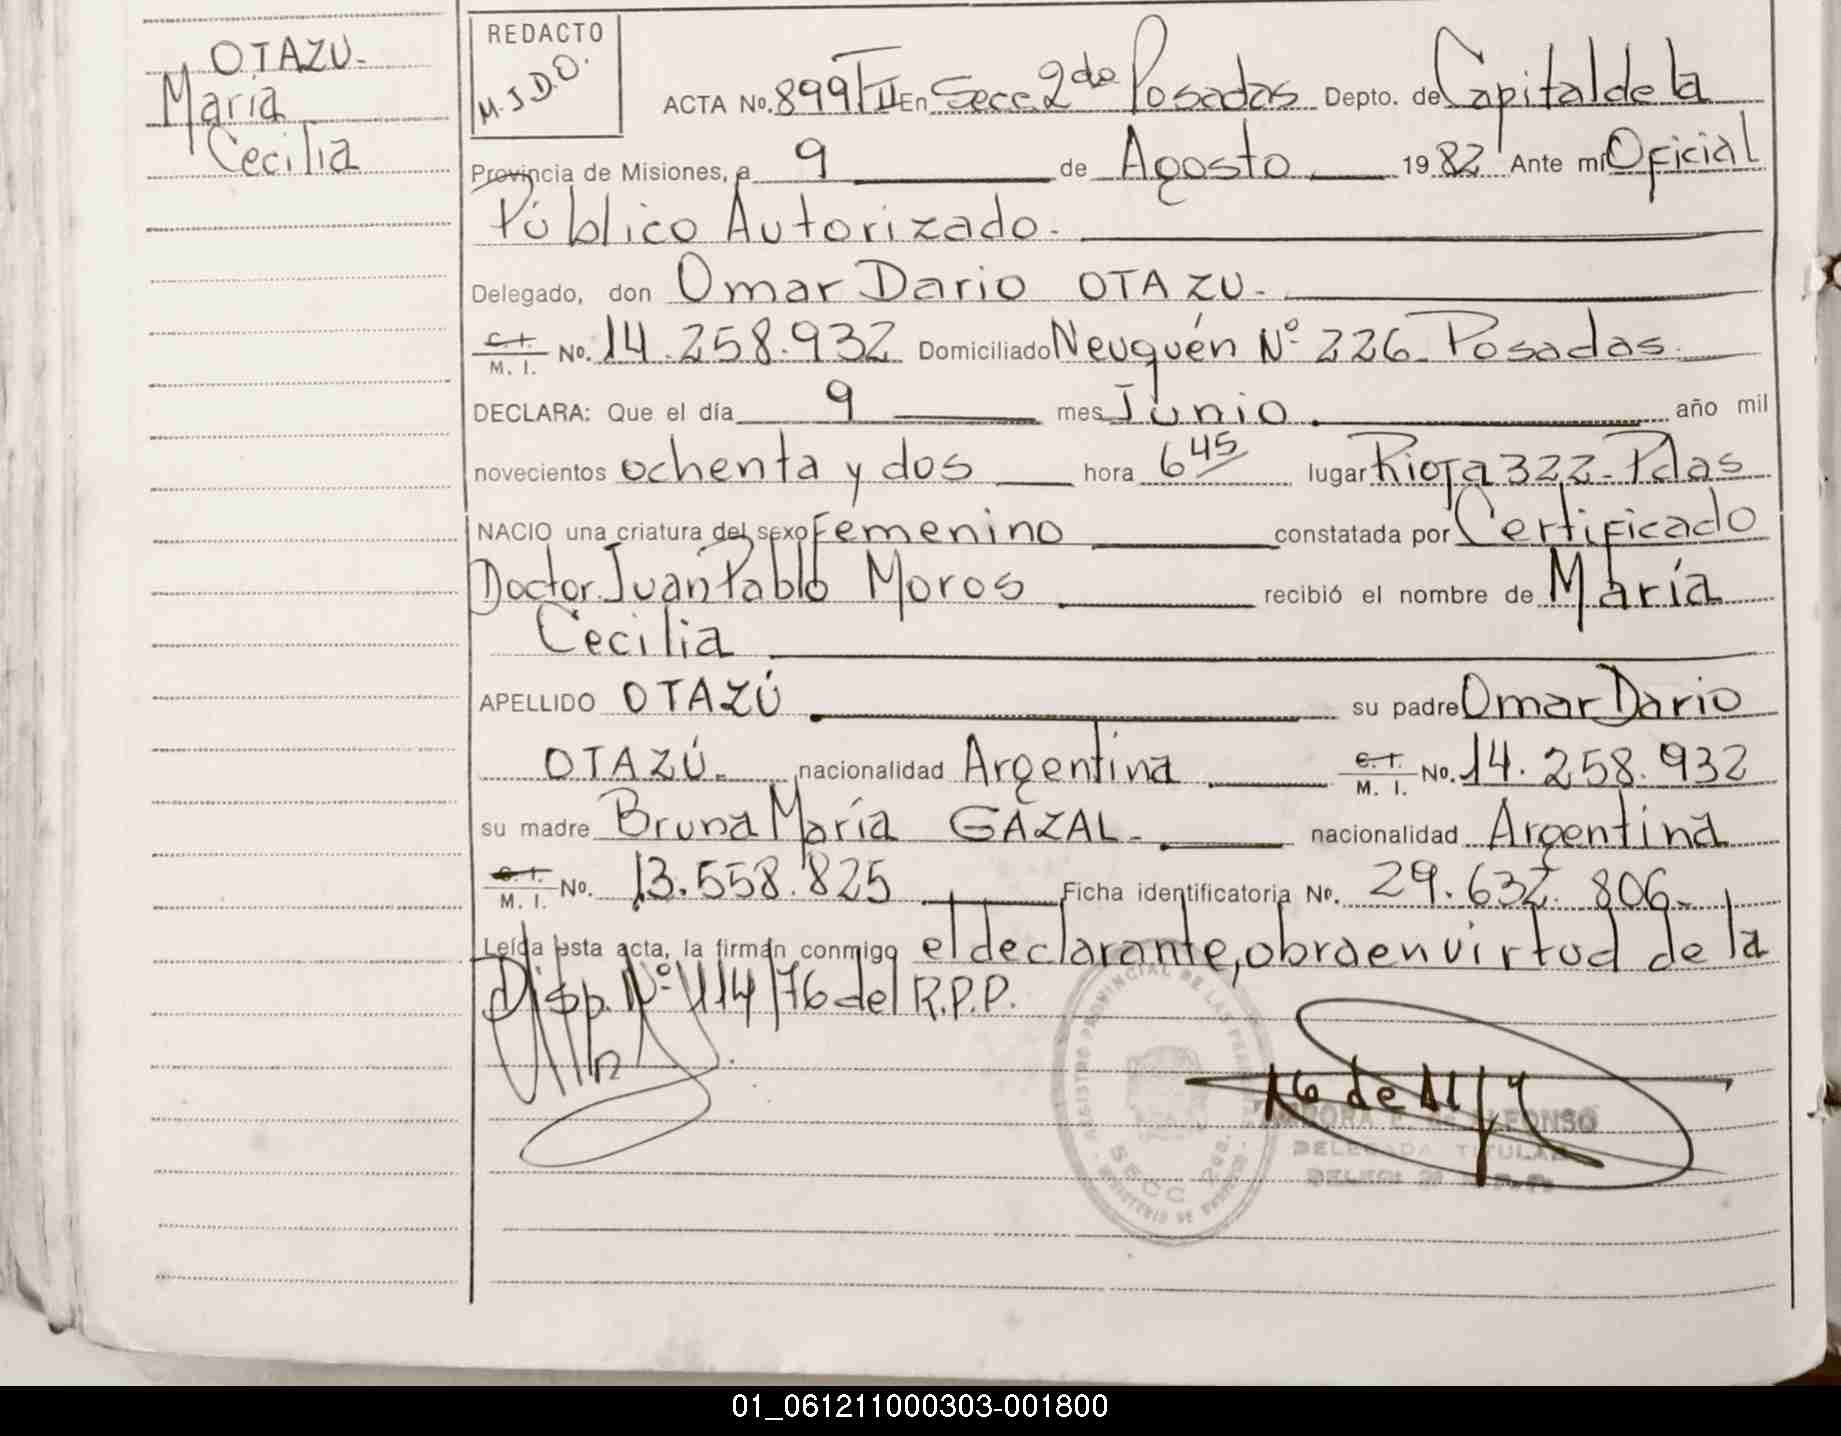 OTAZU.
María
Cecilia
REDACTO
M.J.D.O.
ACTA No. 899 TII En Secc. 2da Posadas Depto. de Capital de la
Provincia de Misiones, a 9 de Agosto 1982 Ante mí Oficial
Público Autorizado.
Delegado, don Omar Dario OTAZU.
C.I. M. I. No. 14.258.932 Domiciliado Neuquén Nº 226 Posadas.
DECLARA: Que el día 9 mes Junio año mil
novecientos ochenta y dos hora 6 45 lugar Rioja 322 - Pdas
NACIO una criatura del sexo Femenino constatada por Certificado
Doctor Juan Pablo Moros recibió el nombre de María
Cecilia
APELLIDO OTAZÚ su padre Omar Dario
OTAZÚ. nacionalidad Argentina C.I. M. I. No. 14.258.932
su madre Bruna María GAZAL - nacionalidad Argentina
C.I. M. I. No. 13.558.825 Ficha identificatoria No. 29.632.806
Leída esta acta, la firman conmigo el declarante, obra en virtud de la
Disp. Nº 114/76 del R.P.P.
REGISTRO PROVINCIAL DE LAS PERSONAS
SECC 2da.
MINISTERIO DE
DELEGADA TITULAR
01_061211000303-001800